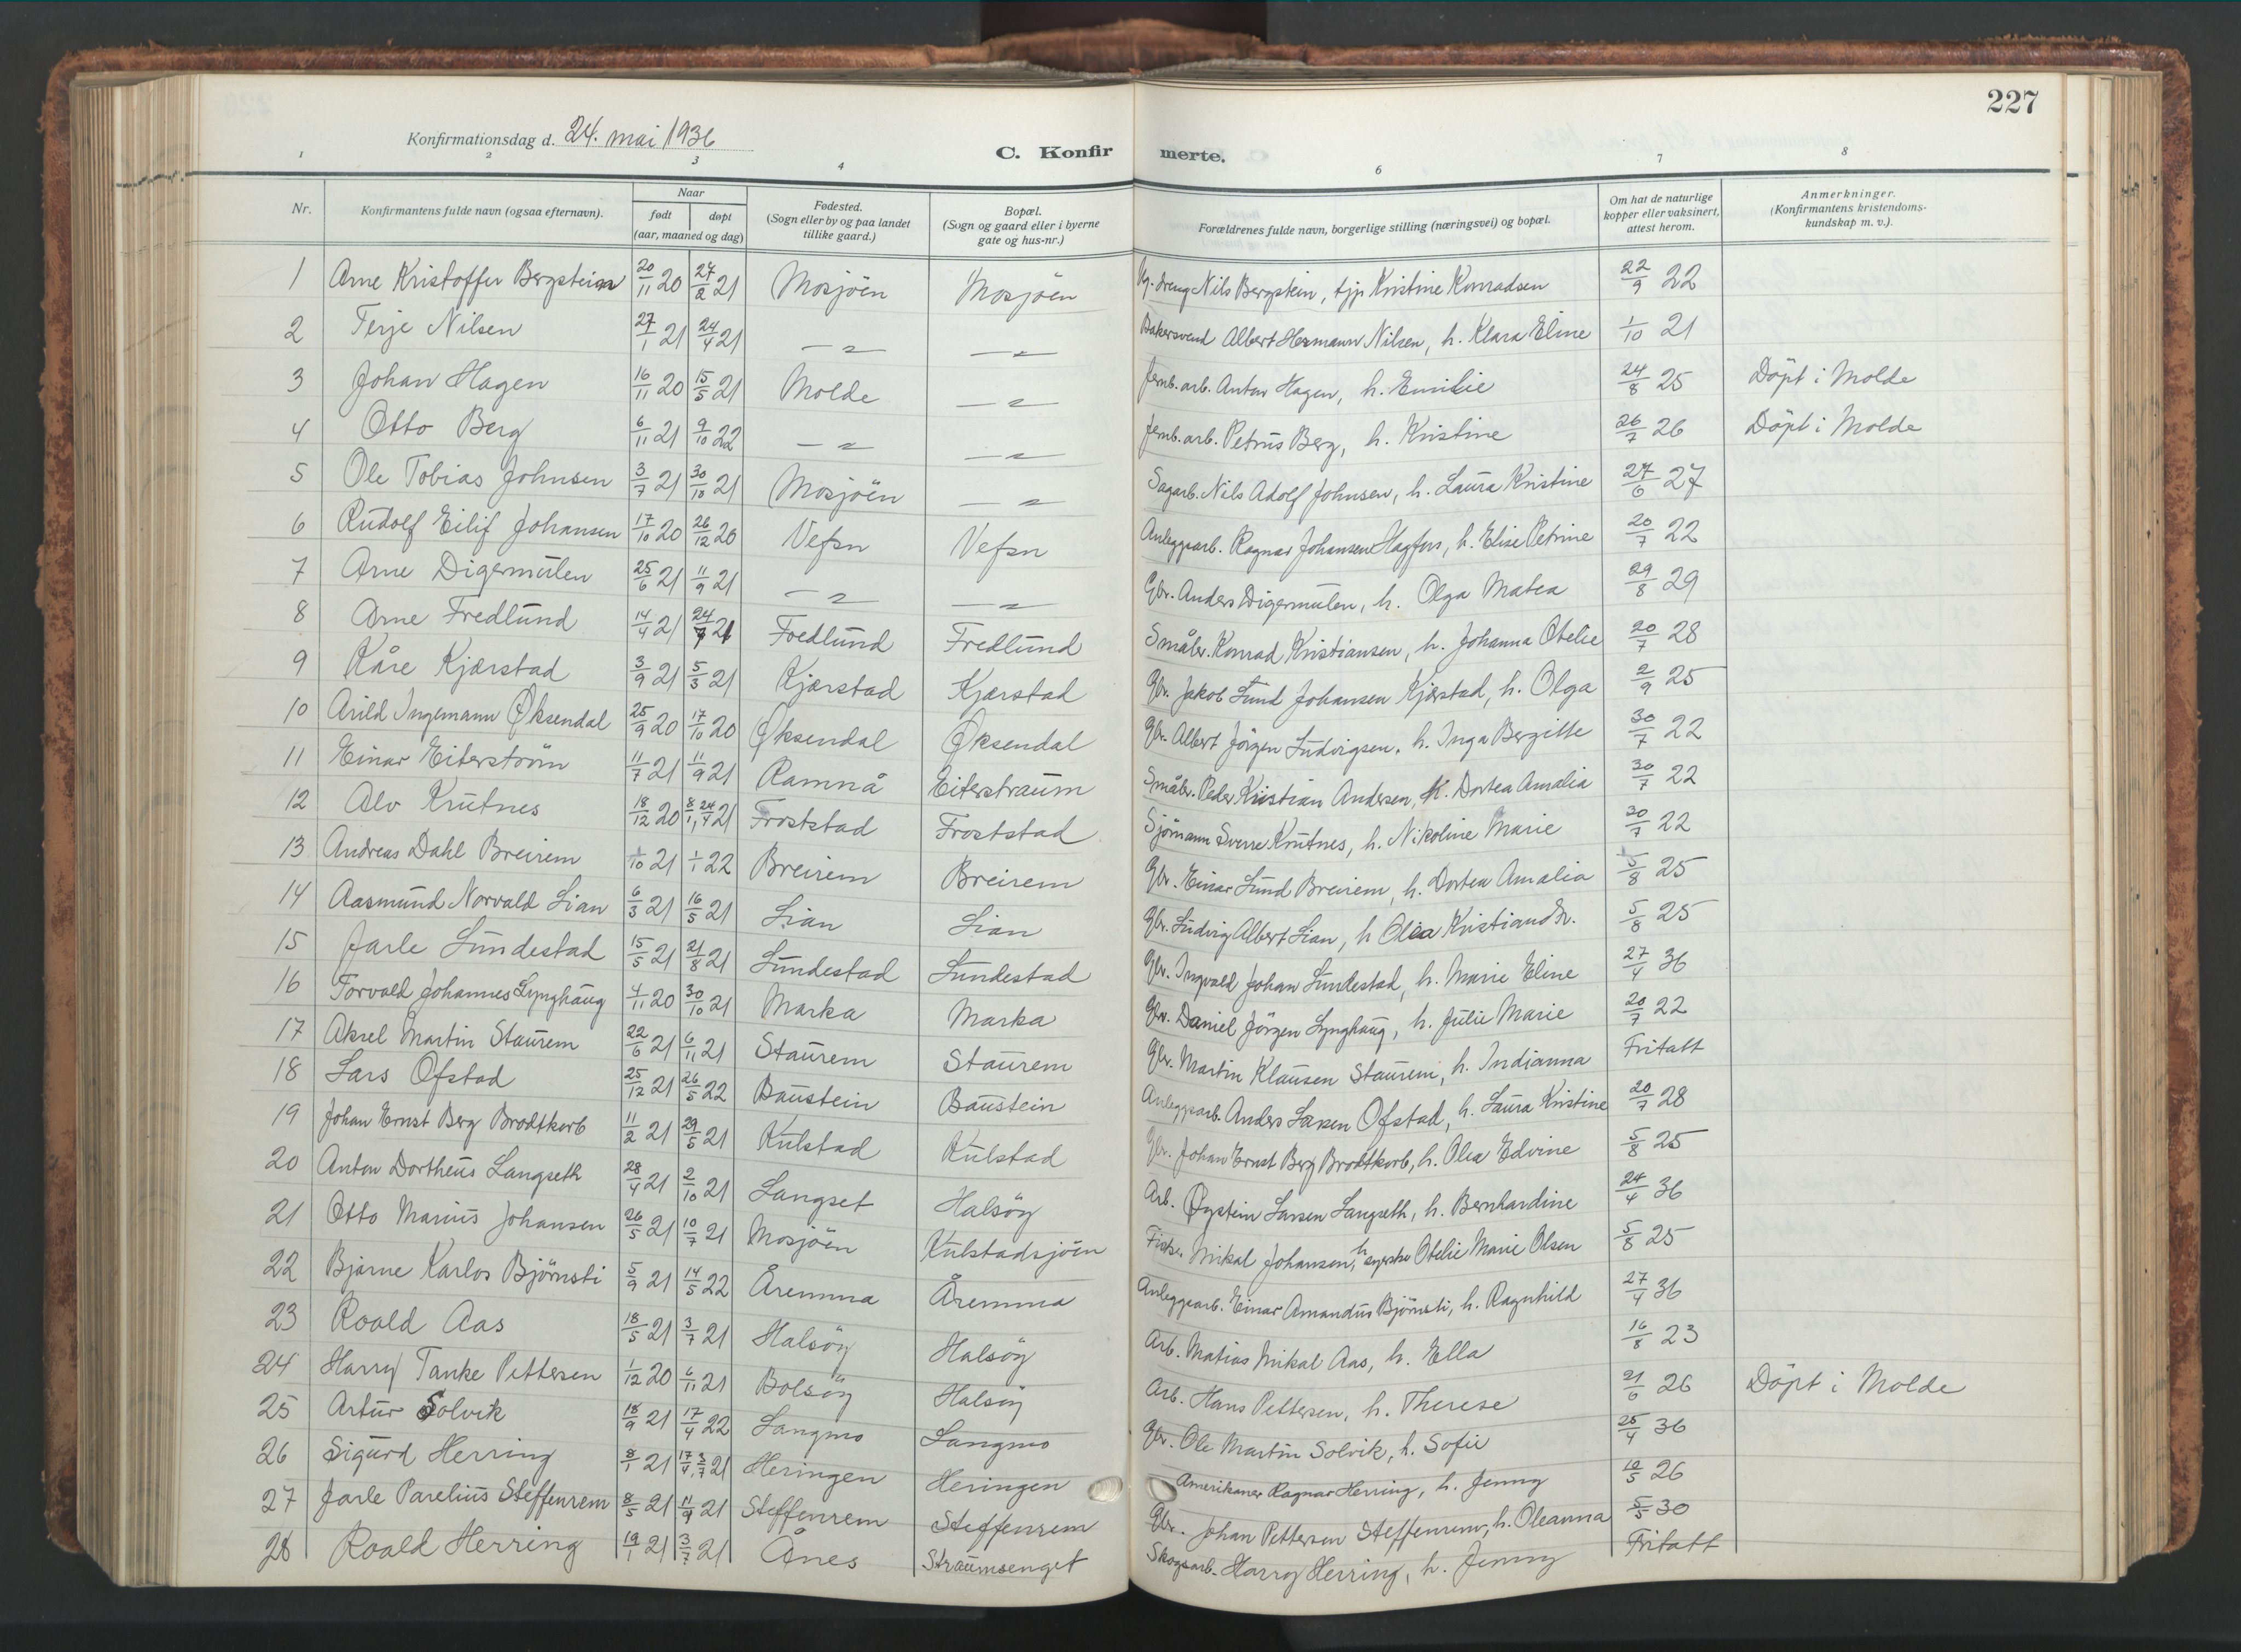 227
Konfirmationsdag d. 24. mai 1936
C. Konfirmerte.
1 2 3 4 6 7 8
Nr. Konfirmantens fulde navn (ogsaa efternavn). Naar født døpt (aar, maaned og dag) Fødested. (Sogn eller by og paa landet tillike gaard.) Bopæl. (Sogn og gaard eller i byerne gate og hus-nr.) Forældrenes fulde navn, borgerlige stilling (næringsvei) og bopæl. Om hat de naturlige kopper eller vaksinert, attest herom. Anmerkninger. (Konfirmantens kristendomskundskap m. v.).
1 Arne Kristoffer Bergstein 20/11 20 27/2 21 Mosjöen Mosjöen Nils Bergstein, tjp Kristine Konradsen 22/9 22
2 Terje Nilsen 27/1 21 24/4 21 —"— —"— Bakersvend Albert Hermann Nilsen, h. Klara Eline 1/10 21
3 Johan Hagen 16/11 20 15/5 21 Molde —"— Jernb.arb. Anton Hagen, h. Emilie 24/8 25 Döpt i Molde
4 Otto Berg 6/11 21 9/10 22 —"— —"— Jernb.arb. Petrus Berg, h. Kristine 26/7 26 Döpt i Molde
5 Ole Tobias Johnsen 3/7 21 30/10 21 Mosjöen —"— Sagarb. Nils Adolf Johnsen, h. Laura Kristine 27/6 27
6 Rudolf Eilif Johansen 17/10 20 26/12 20 Vefsn Vefsn Anleggsarb. Ragnar Johansen Hagfors, h. Elise Petrine 20/7 22
7 Arne Digermulen 25/6 21 11/9 21 —"— —"— Gbr. Anders Digermulen, h. Olga Matea 29/8 29
8 Arne Fredlund 14/4 21 24/7 21 Fredlund Fredlund Småbr. Konrad Kristiansen, h. Johanna Otelie 20/7 28
9 Kåre Kjærstad 3/9 21 5/3 21 Kjærstad Kjærstad Gbr. Jakob Lund Johansen Kjærstad, h. Olga 2/9 25
10 Arild Ingemann Øksendal 25/9 20 17/10 20 Øksendal Øksendal Gbr. Albert Jörgen Ludvigsen, h. Inga Bergitte 30/7 22
11 Einar Eiterström 11/7 21 11/9 21 Ramnå Eiterstraum Småbr. Peder Kristian Andersen, h. Dortea Amalia 30/7 22
12 Alv Krutnes 18/12 20 8/1, 24/4 21 Froststad Froststad Sjömann Sverre Krutnes, h. Nikoline Marie 30/7 22
13 Andreas Dahl Breirem 1/10 21 1/1 22 Breirem Breirem Gbr. Einar Lund Breirem, h. Dortea Amalia 5/8 25
14 Aasmund Norvald Lian 6/3 21 16/5 21 Lian Lian Gbr. Ludvig Albert Lian, h Olea Kristiandtr. 5/8 25
15 Jarle Lundestad 15/5 21 21/8 21 Lundestad Lundestad Gbr. Ingvald Johan Lundestad, h. Marie Eline 27/4 36
16 Torvald Johannes Lynghaug 4/11 20 30/10 21 Marka Marka Gbr. Daniel Jörgen Lynghaug, h. Julie Marie 20/7 22
17 Aksel Martin Staurem 22/6 21 6/11 21 Staurem Staurem Gbr. Martin Klausen Staurem, h. Indianna Fritatt
18 Lars Ofstad 25/12 21 26/5 22 Baustein Baustein Anleggsarb. Anders Larsen Ofstad, h. Laura Kristine 20/7 28
19 Johan Ernst Berg Brodtkorb 11/2 21 29/5 21 Kulstad Kulstad Gbr. Johan Ernst Berg Brodtkorb, h. Olea Edvine 5/8 25
20 Anton Dortheus Langseth 28/4 21 2/10 21 Langset Halsöy Arb. Øystein Larsen Langseth, h. Bernhardine 24/4 36
21 Otto Marius Johansen 26/5 21 10/7 21 Mosjöen Kulstadsjöen Fisker Mikal Johansen, h syerske Otelie Marie Olsen 5/8 25
22 Bjarne Karlos Björnsti 5/9 21 14/5 22 Åremma Åremma Anleggsarb. Einar Amandus Björnsti, h. Ragnhild 27/4 36
23 Roald Aas 18/5 21 3/7 21 Halsöy Halsöy Arb. Matias Mikal Aas, h. Ella 16/8 23
24 Harry Tanke Pettersen 1/12 20 6/11 21 Bolsöy Halsöy Arb. Hans Pettersen, h. Therese 21/6 26 Döpt i Molde
25 Artur Solvik 18/9 21 17/4 22 Langmo Langmo Gbr. Ole Martin Solvik, h. Sofie 25/4 36
26 Sigurd Herring 8/1 21 17/4, 3/7 21 Heringen Heringen Amerikaner Ragnar Herring, h. Jenny 10/5 26
27 Jarle Parelius Steffenrem 8/5 21 11/9 21 Steffenrem Steffenrem Gbr. Johan Pettersen Steffenrem, h. Oleanna 5/5 30
28 Roald Herring 19/1 21 3/7 21 Ånes Straumsenget Skogsarb. Harry Herring, h. Jenny Fritatt